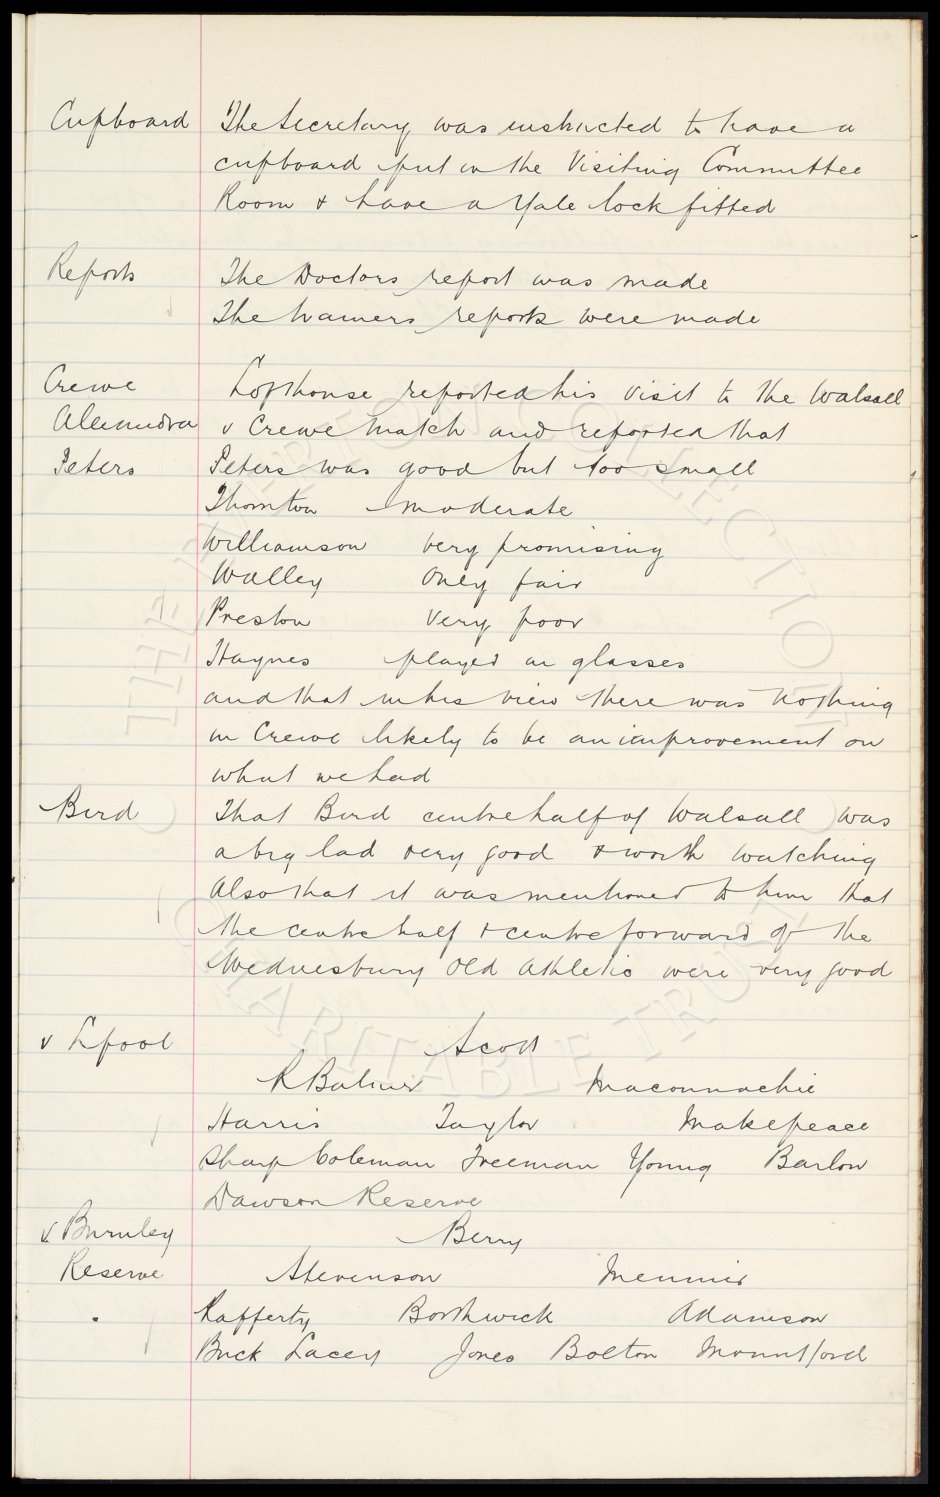 Cupboard The Secretary was instructed to have a
cupboard put in the Visiting Committee
Room & have a Yale lock fitted
Reports The Doctors report was made
The trainers reports were made
Crewe Lofthouse reported his visit to the Walsall
Alexandra v Crewe match and reported that
Peters Peters was good but too small
Thornton moderate
Williamson very promising
Walley only fair
Preston very poor
Haynes played in glasses
and that in his view there was nothing
in Crewe likely to be an improvement on
what we had
Bird That Bird centre half of Walsall was
a big lad very good & worth watching
Also that it was mentioned to him that
the centre half & centre forward of the
Wednesbury Old Athletic were very good
v Lpool Scott
R Balmer Maconnachie
Harris Taylor Makepeace
Sharp Coleman Freeman Young Barlow
Dawson Reserve
v Burnley Berry
Reserve Stevenson Meunier
Rafferty Borthwick Adamson
Buck Lacey Jones Bolton Mountford
© THE EVERTON COLLECTION
CHARITABLE TRUST